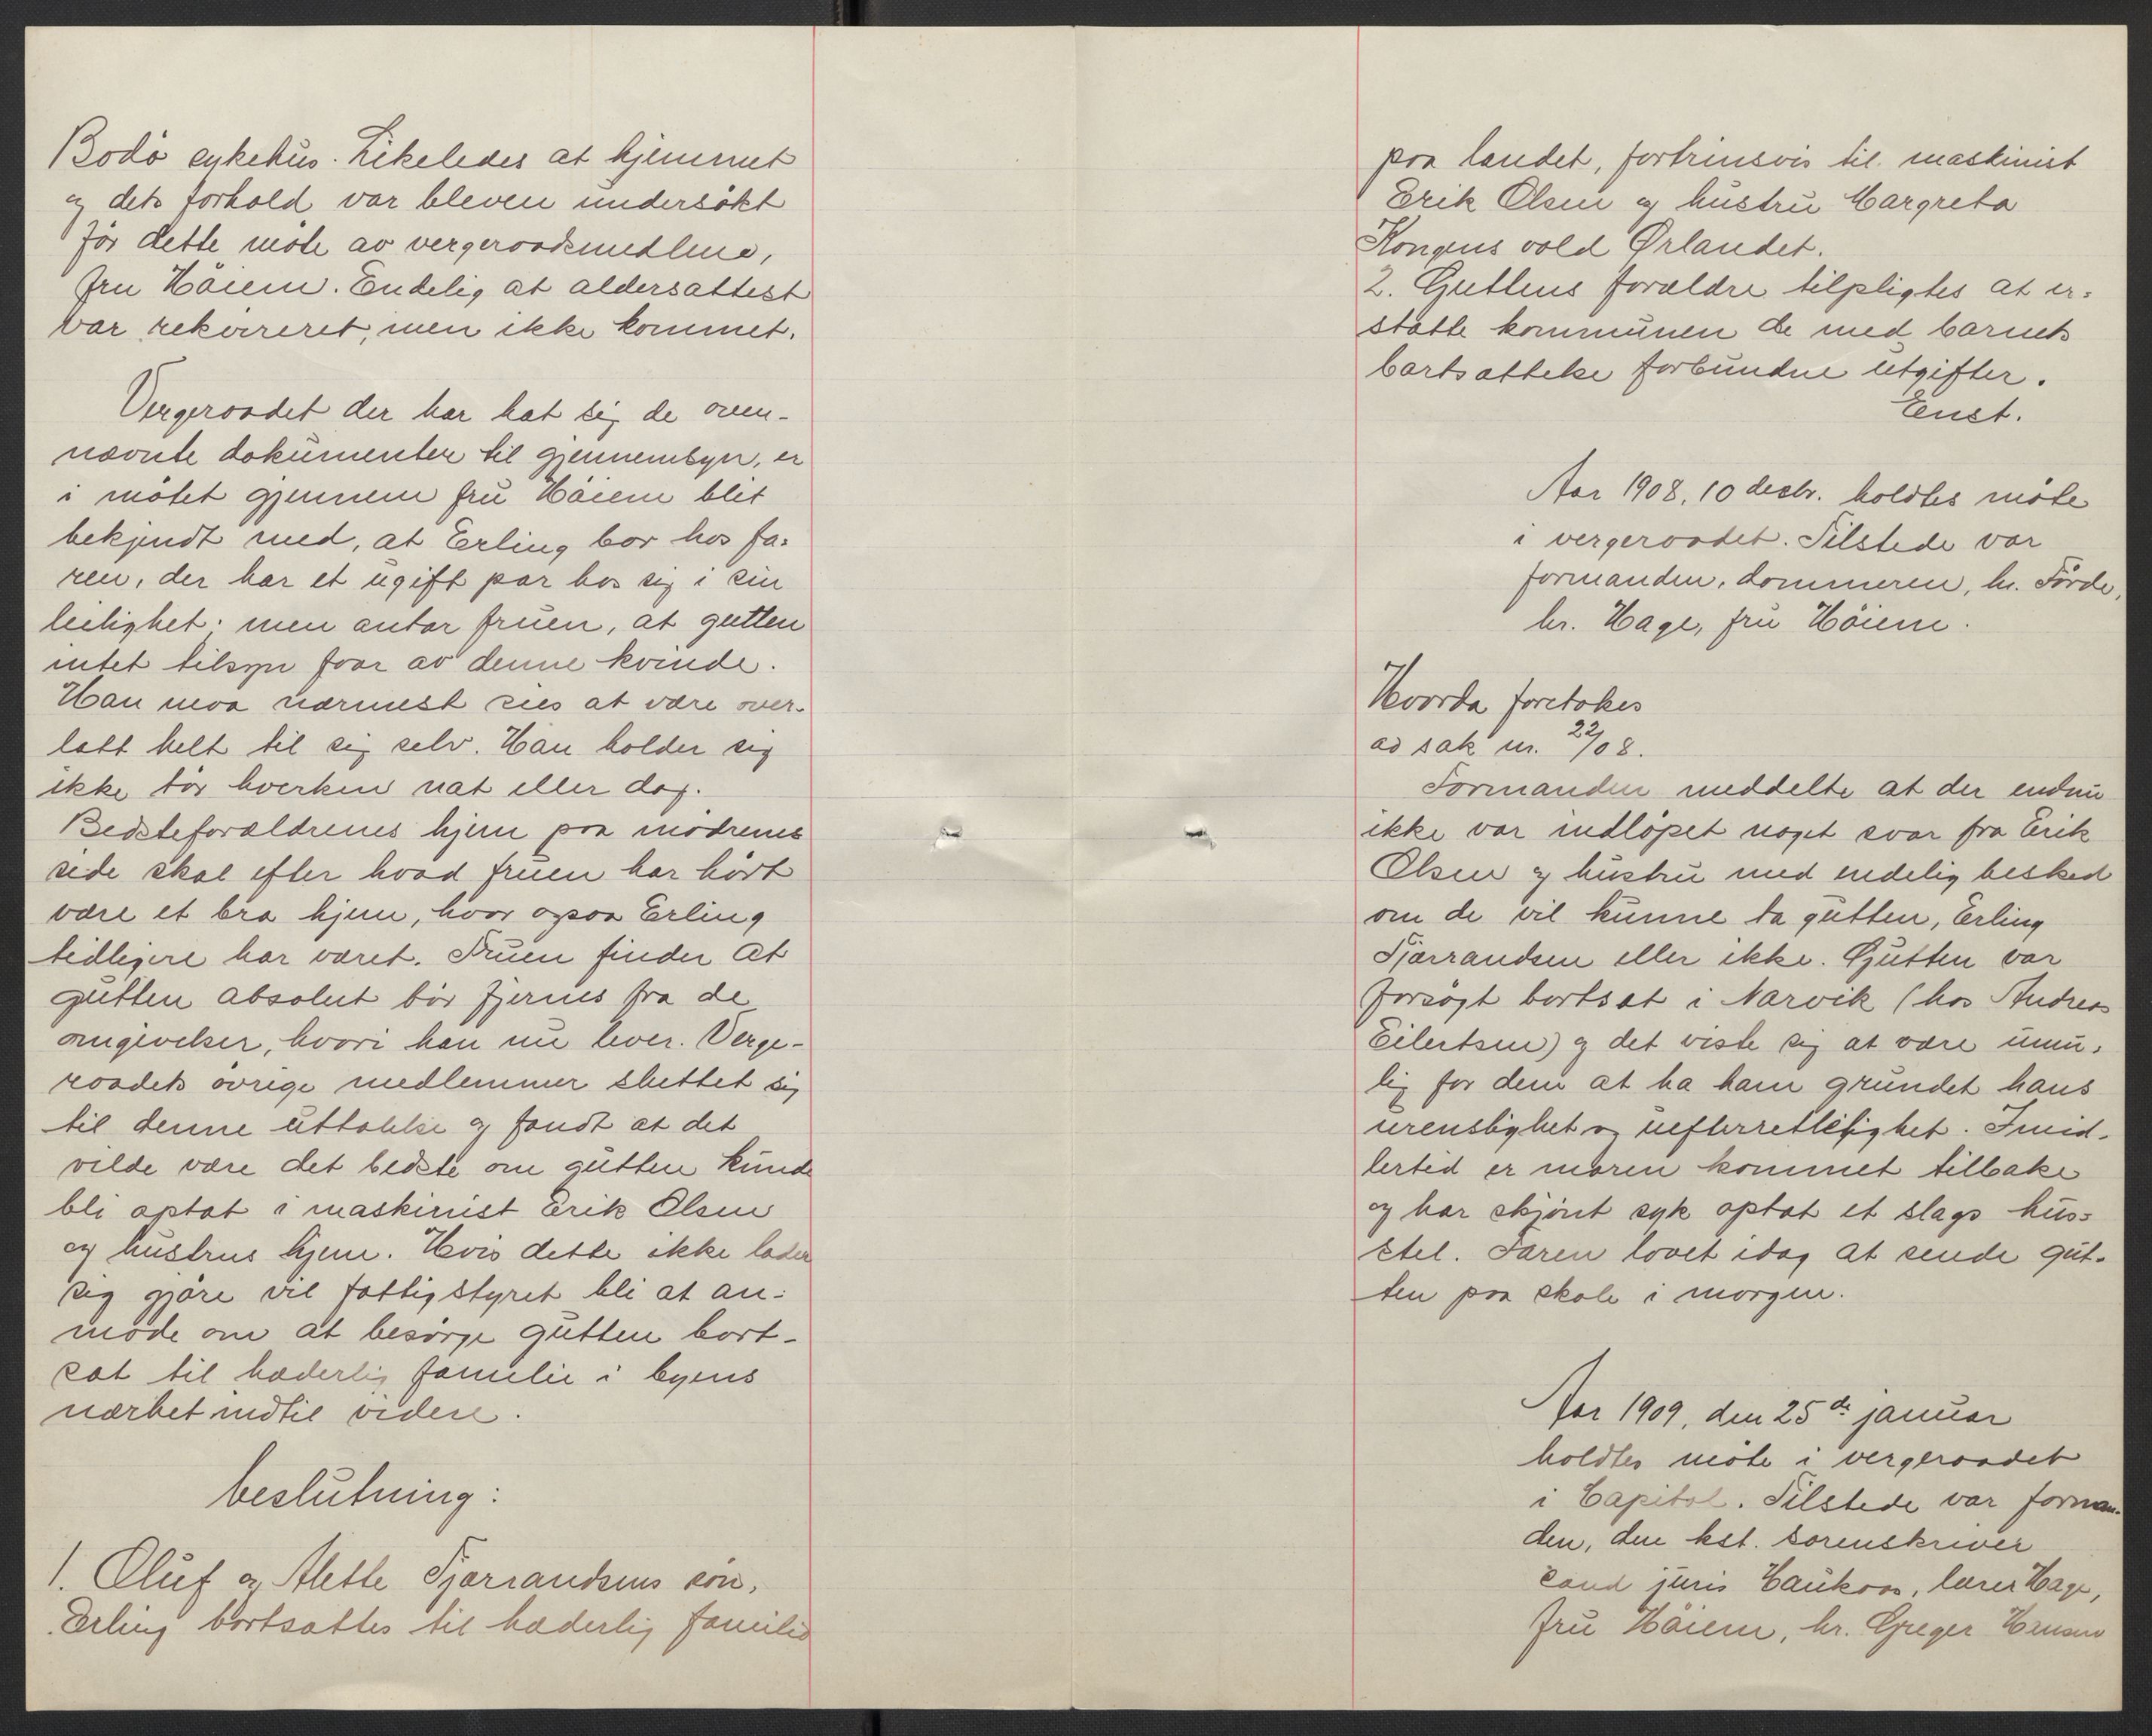 Bodö sykehus. Likeledes at hjemmet
og dets forhold var bleven undersökt
för dette möte av vergeraadsmedlem,
fru Höiem. Endelig at aldersattest
var rekvireret, men ikke kommet.
Vergeraadet der har hat sig de oven-
nævnte dokumenter til gjennemsyn, er
i mötet gjennem fru Höiem blit
bekjendt med, at Erling bor hos fa-
ren, der har et ugift par hos sig i sin
leilighet; men antar fruen, at gutten
intet tilsyn faar av denne kvinde.
Han maa nærmest sies at være over-
latt helt til sig selv. Han holder sig
ikke tör hverken nat eller dag.
Bedsteforældrenes hjem paa mödrenes
side skal efter hvad fruen har hört
være et bra hjem, hvor ogsaa Erling
tidligere har været. Fruen finder at
gutten absolut bör fjernes fra de
omgivelser, hvori han nu lever. Verge-
raadets övrige medlemmer sluttet sig
til denne uttalelse og fandt at det
vilde være det bedste om gutten kunde
bli optat i maskinist Erik Olsen
og hustrus hjem. Hvis dette ikke lader
sig gjöre vil fattigstyret bli at an-
mode om at besörge gutten bort-
sat til hæderlig familie i byens
nærhet indtil videre.
beslutning:
1. Oluf og Alette Tjærrandsens sön,
Erling bortsættes til hæderlig familie
paa landet, fortrinsvis til maskinist
Erik Olsen og hustru Margreta
Kongens vold Ørlandet.
2. Guttens forældre tilpligtes at er-
statte kommunen de med barnets
bortsættelse forbundne utgifter.
Enst.
Aar 1908, 10 decbr. holdtes möte
i vergeraadet. Tilstede var
formanden, dommeren, hr. Förde,
hr. Hage, fru Höiem.
Hvorda foretokes
ad sak nr. 22/08.
Formanden meddelte at der endnu
ikke var indlöpet noget svar fra Erik
Olsen og hustru med endelig besked
om de vil kunne ta gutten, Erling
Tjærrandsen eller ikke. Gutten var
forsögt bortsat i Narvik (hos Andreas
Eilertsen) og det viste sig at være umu-
lig for dem at ha ham grundet hans
urenslighet og uefterrettelighet. Imid-
lertid er moren kommet tilbake
og har skjönt syk optat et slags hus-
stel. Faren lovet idag at sende gut-
ten paa skole i morgen.
Aar 1909, den 25de januar
holdtes möte i vergeraadet
i Capitol. Tilstede var forman-
den, den kst. sorenskriver
cand juris Haukaas, lærer Hage,
fru Höiem, hr. Greger Hansen